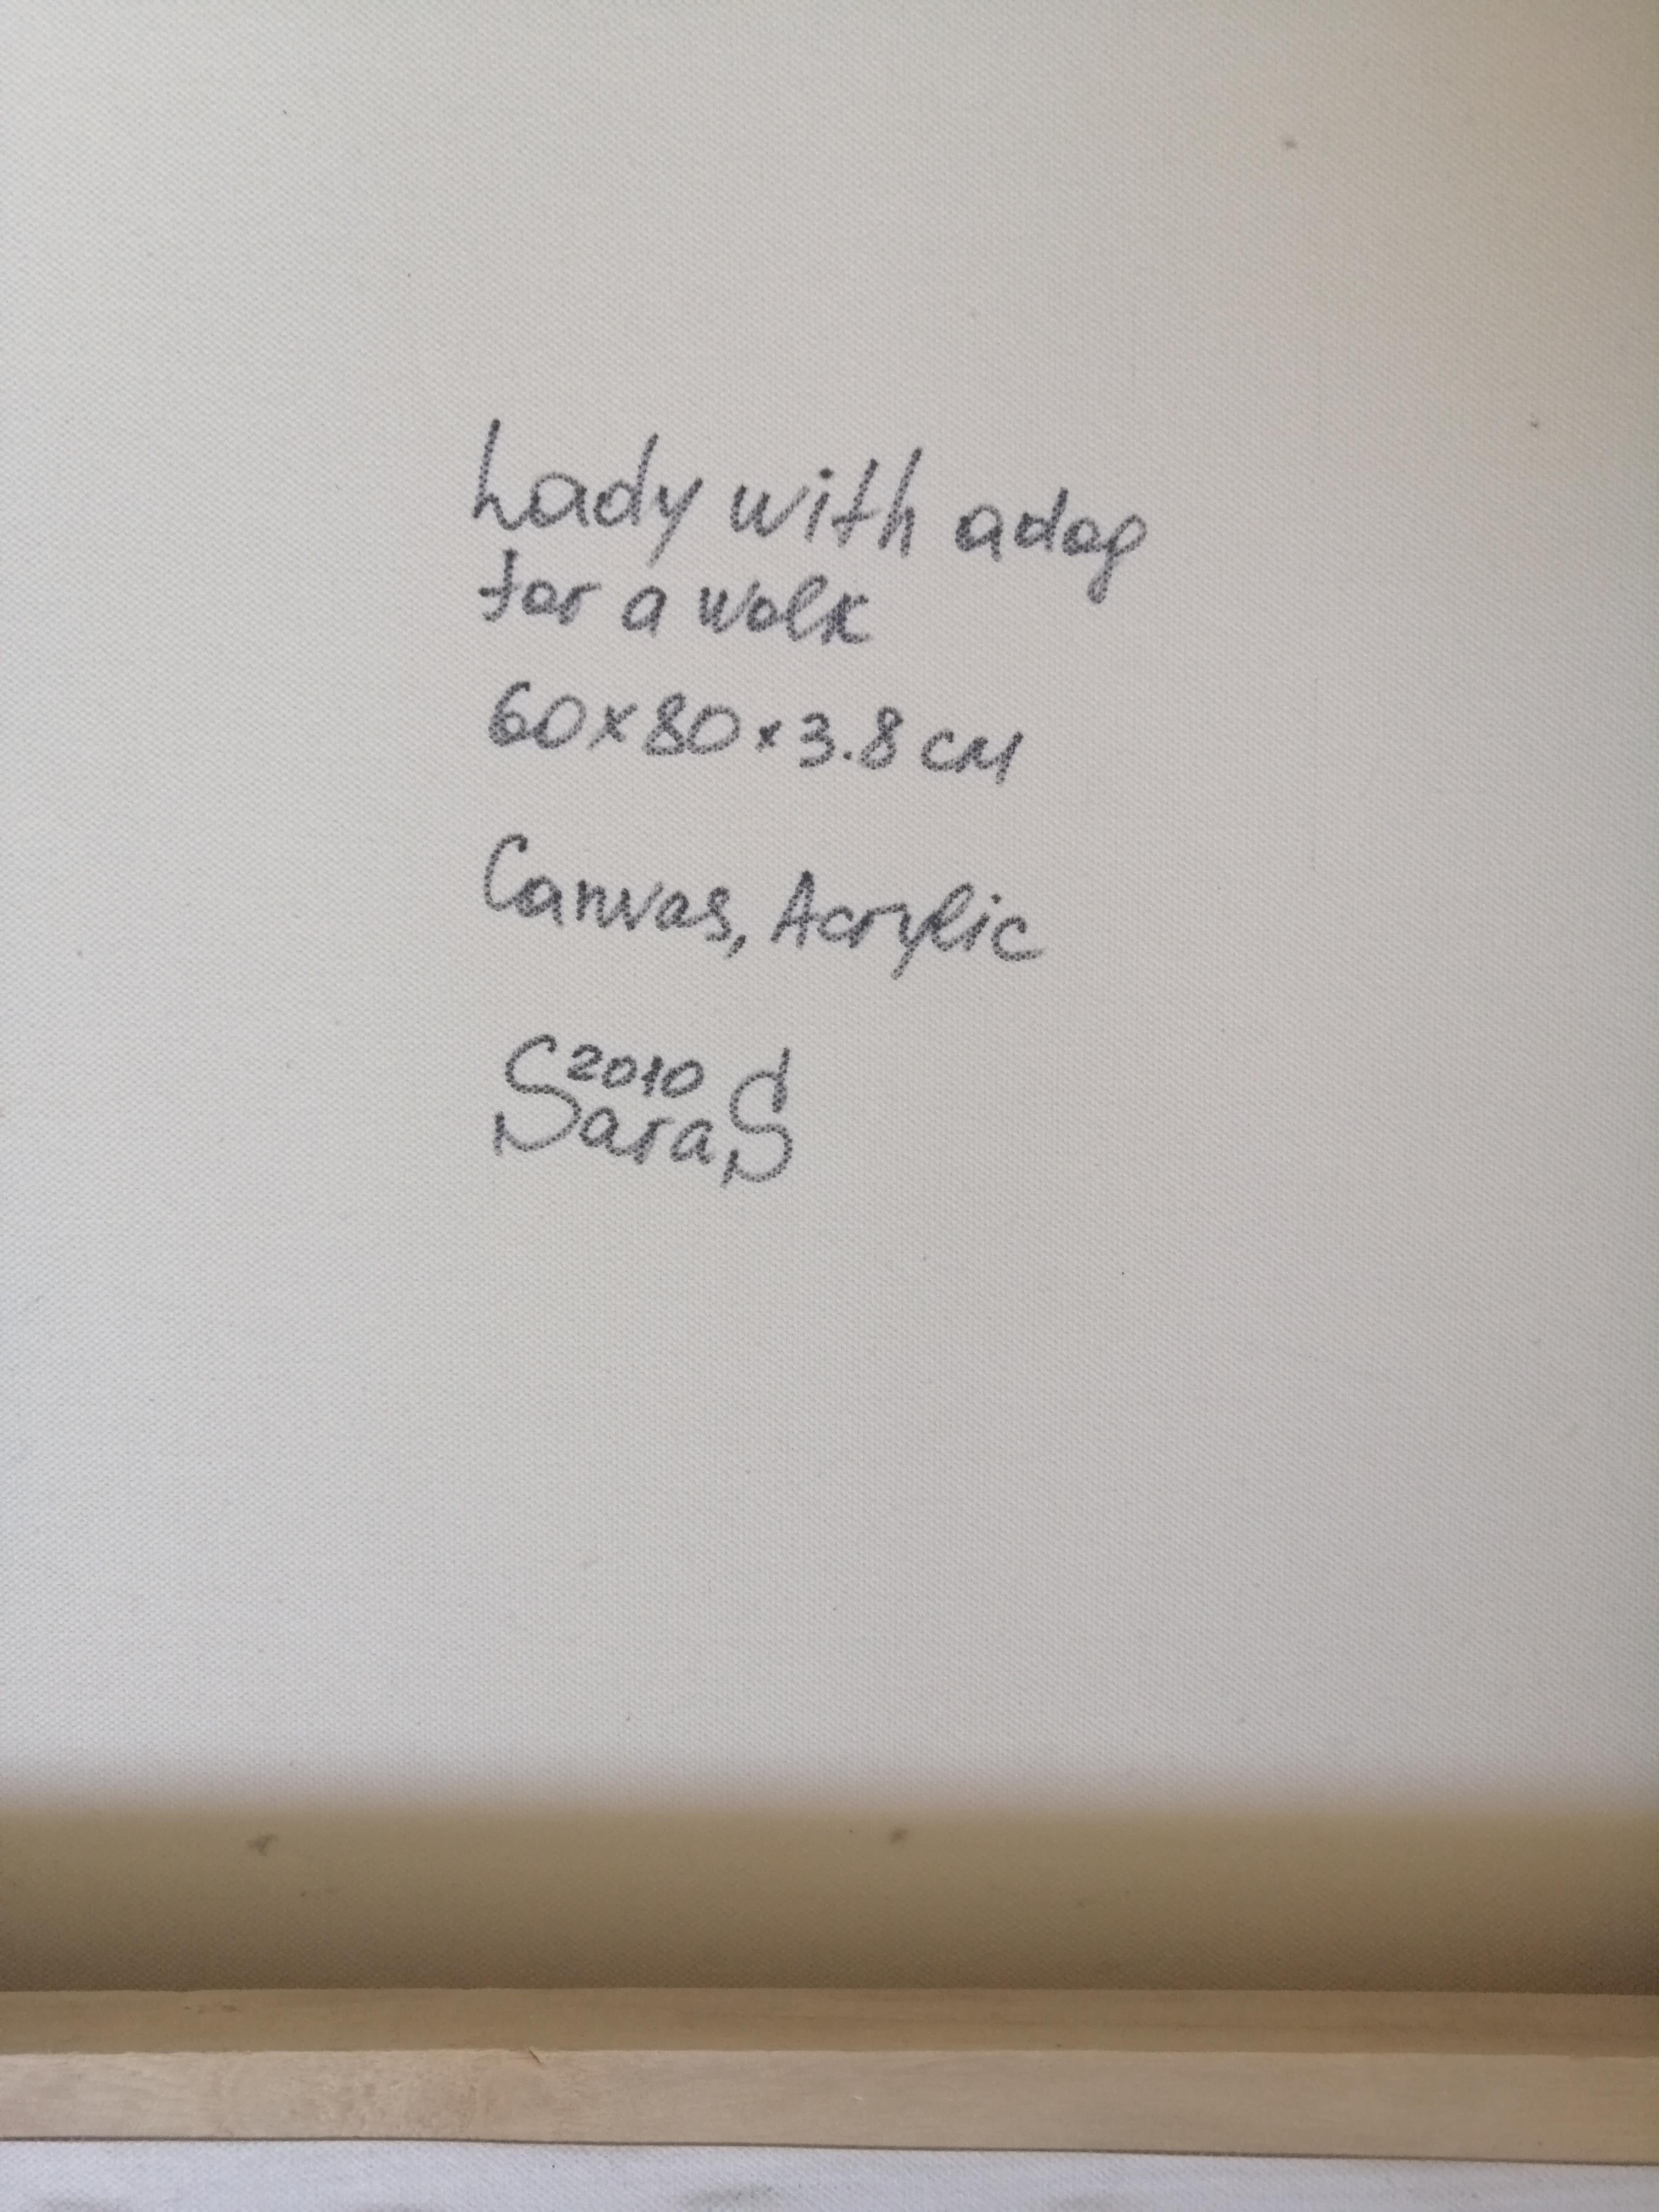 Lady with a dog
for a walk
60x80x3.8 cm
Canvas, Acrylic
2010
SaraS